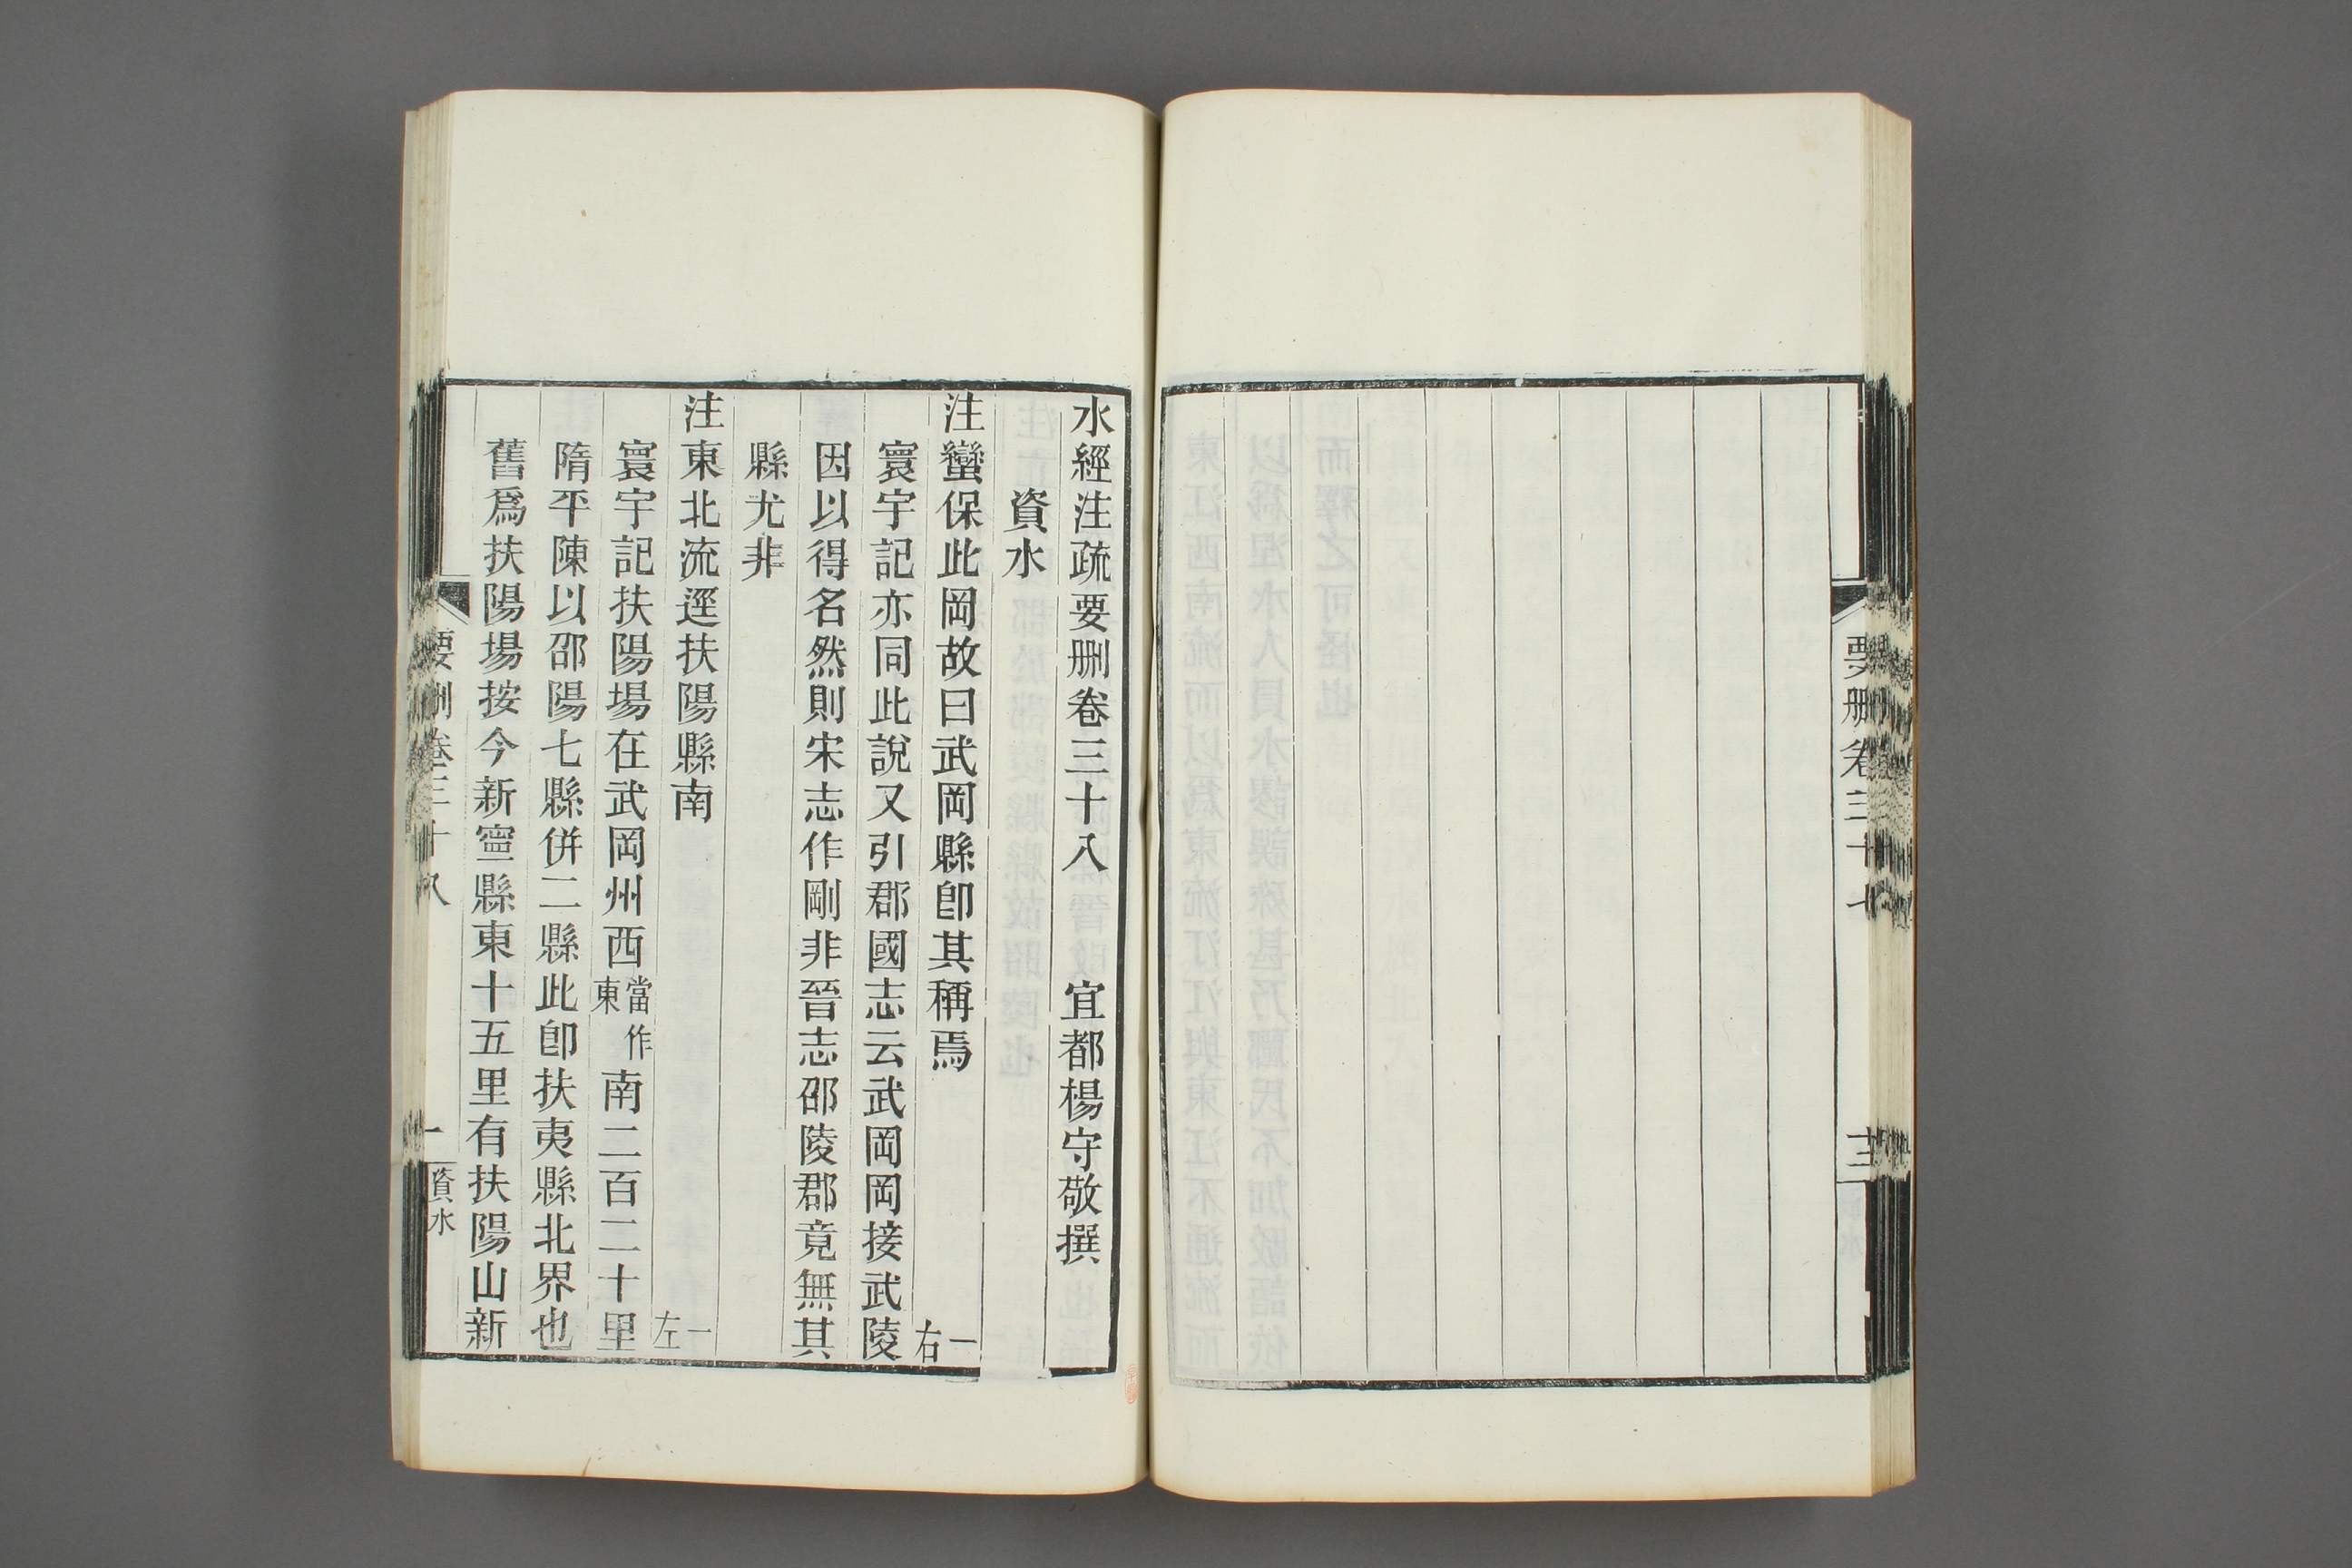 要刪卷三十七
十三
水經注疏要刪卷三十八　宜都楊守敬撰
資水
注蠻保此岡故曰武岡縣卽其稱焉　一右
寰宇記亦同此說又引郡國志云武岡岡接武陵
因以得名然則宋志作剛非晉志邵陵郡竟無其
縣尤非
注東北流逕扶陽縣南　一左
寰宇記扶陽場在武岡州西當作東南二百二十里
隋平陳以邵陽七縣併二縣此卽扶夷縣北界也
舊爲扶陽場按今新寧縣東十五里有扶陽山新
要刪卷三十八
一
資水